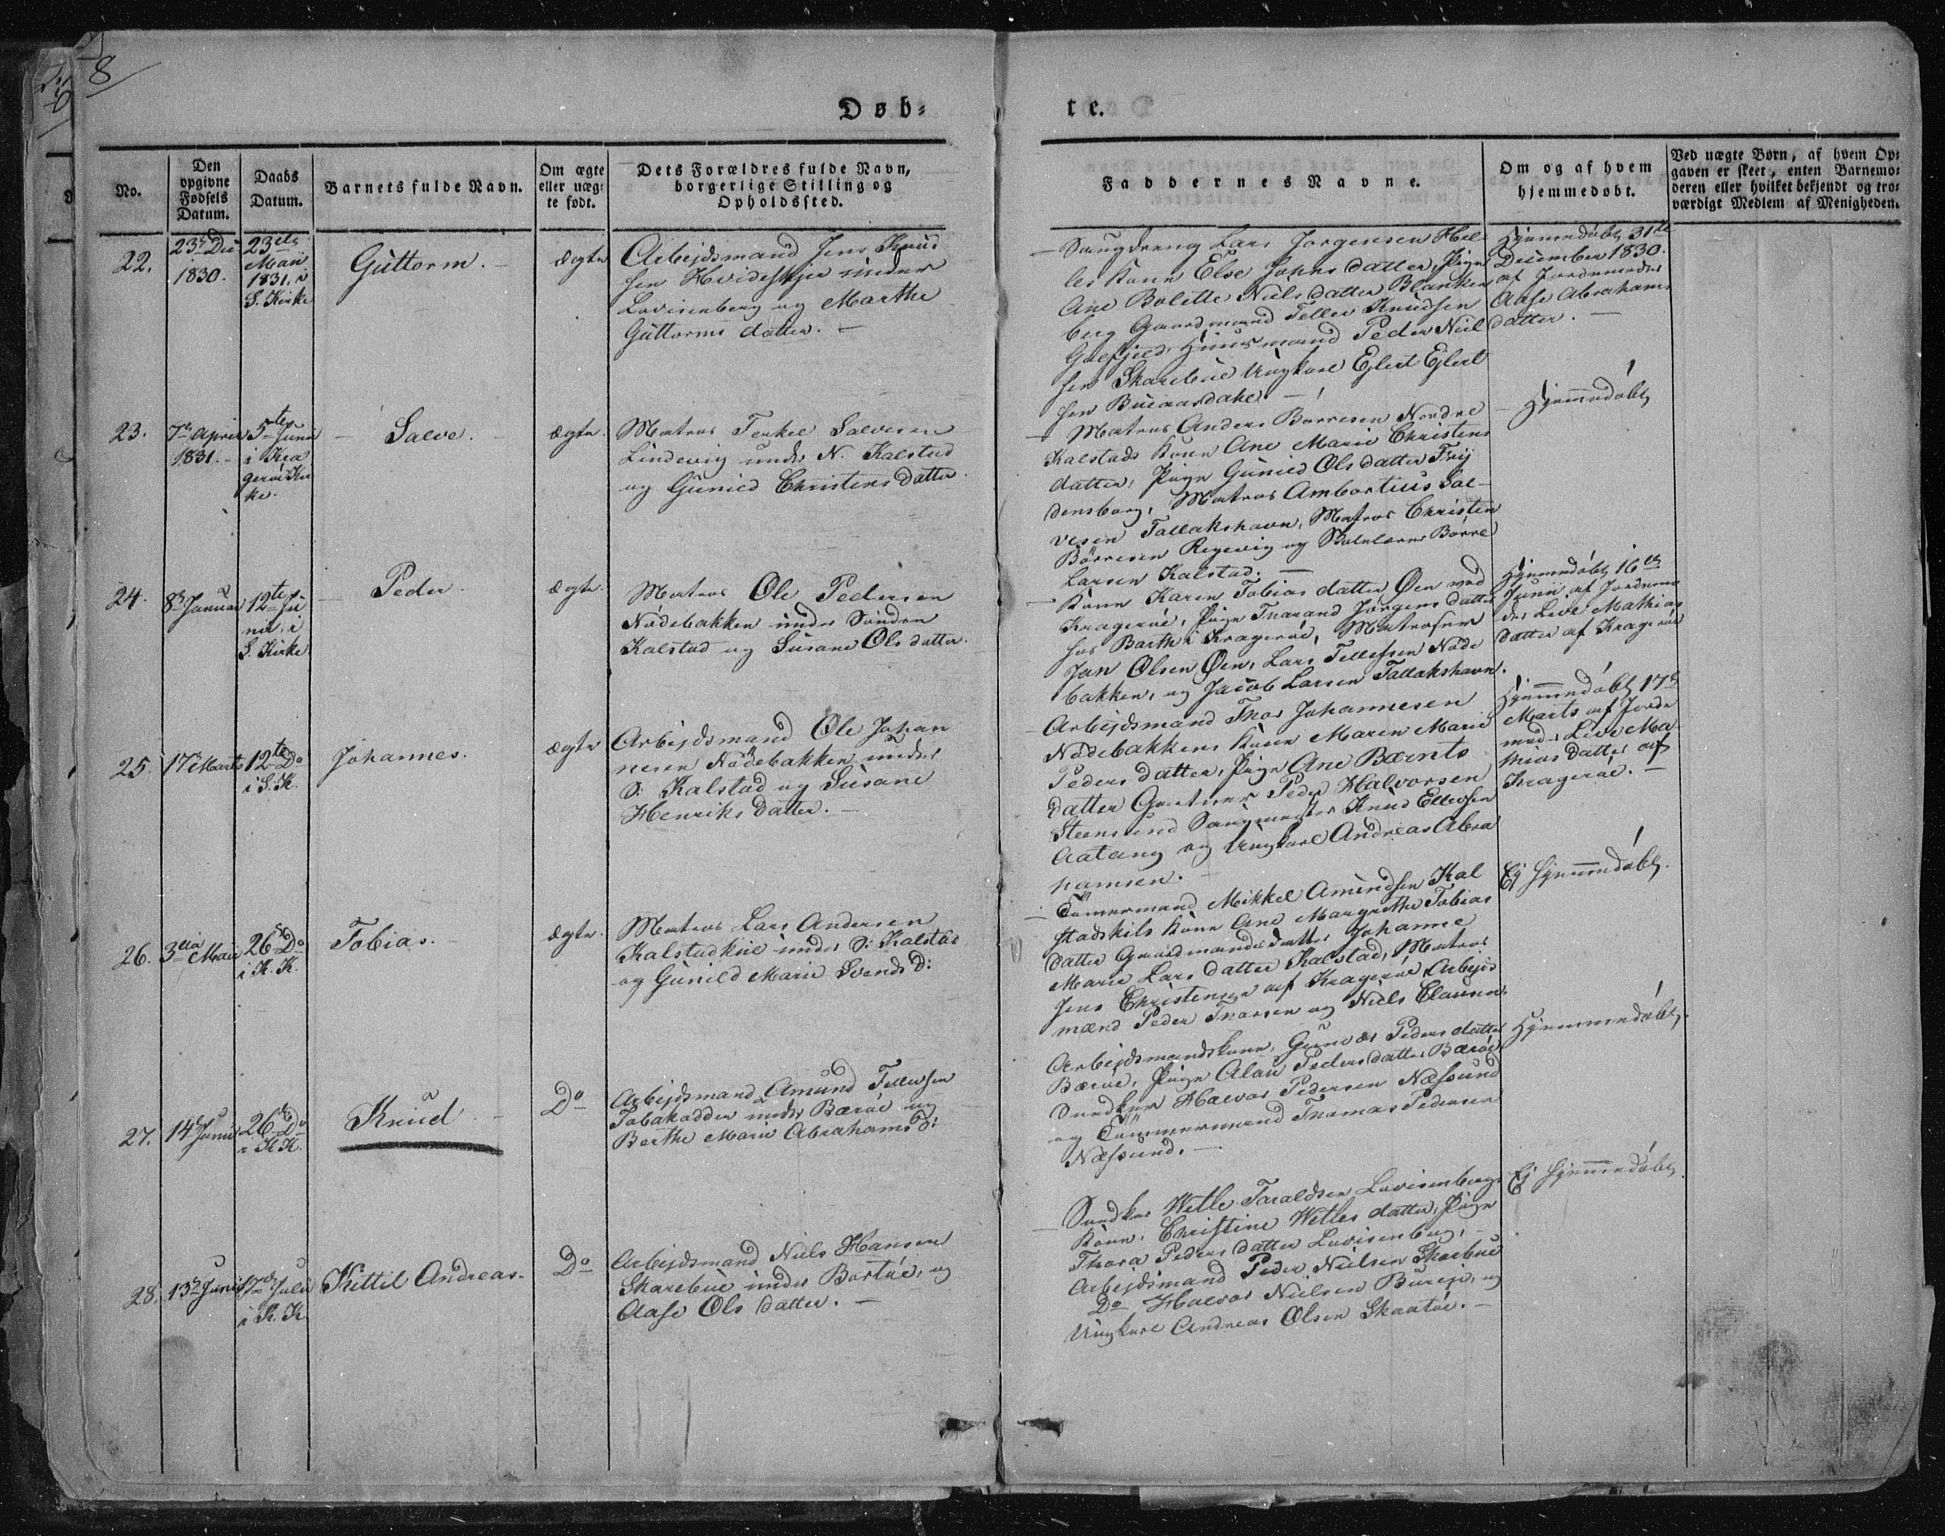 8
Døb-
te.
No.
Den
opgivne
Fødsels
Datum.
Daabs
Datum.
Barnets fulde Navn.
Om ægte
eller uæg-
te født.
Dets Forældres fulde Navn,
borgerlige Stilling og
Opholdssted.
Faddernes Navne.
Om og af hvem
hjemmedøbt.
Ved uægte Børn, af hvem Op-
gaven er skeet, enten Barnemo-
deren eller hvilket bekjendt og tro-
værdigt Medlem af Menigheden.
22.
23de Dec
1830.
23de
Maii
1831, i
S. Kirke
Guttorm.
ægte
Arbejdsmand Jens Knud
sen under
Lovisenberg og Marthe
Guttorms datter.
Lars Jorgensen Hel
les Kone Else Johns datter, Pige
Ane Bolette Niels datter Blanken
berg Gaardmand Tellef Knudsen
Huusmand Peder Niel
sen Skarebue Ungkarl Ejlert Ejlert
sen
Hjemmedøbt 31te
December 1830.
af Jordemoder
Aase Abrahams
datter.
23.
7de April
1831.
5te Junii
i Kra
gerøe Kir
ke.
Salve.
ægte.
Matros Terkel Salvesen
Lindevig under N. Kalstad
og Gunild Christens datter.
Matros Anders Borresen Nordre
Kalstads Kone Ane Marie Christens
datter, Pige Gunild Ols datter Frij
densborg, Matros Ambortius Sal-
vesen Tallakshavn, Matros Christen
Börresen Regevig og Skolelærer Børre
Larsen Kalstad.
Hjemmedøbt
24.
8de Januar
12te Ju
nii, i
S. Kirke
Peder
ægte.
Matros Ole Pedersen
Nödebakken under Söndre
Kalstad og Susane Ols datter.
Kone Karen Tobias datter Øen ved
Kragerøe, Pige Tharand Jörgens datter
hos Barth i Kragerøe, Matroser
Jan Olsen Øen, Lars Tellefsen Nöde
bakken, og Jacob Larsen Tallakshavn.
Hjemmedøbt 16de
Junii af Jordemo
der Live Mathias
datter af Kragerøe
25.
17de Marts
12te Do
i S. K.
Johannes.
ægte
Arbejdsmand Ole Johan
nesen Nödebakken under
S. Kalstad og Susane
Henriks datter.
Arbejdsmand Thor Johannesen
Nödebakkens Kone Maren Marie
Peders datter, Pige Ane Bærnts
datter Gartner Peder Halvorsen
Steensund Knud Ellevsen
Aatang og Ungkarl Andreas Abra
hamsen.
Hjemmedøbt 17de
Marts af Jorde
moder Live Ma-
thias datter af
Kragerøe.
26.
3die Maii
26de Do
i K. K.
Tobias.
ægte.
Matros Lars Andersen
Kalstadkile under S. Kalstad
og Gunild Marie Svends D:
Tömermand Mikkel Amundsen Kal
stadkils Kone Ane Margrethe Tobias
datter Gaardmands datter Johanne
Marie Lars datter Kalstad, Matros
Jens Christensen af Kragerøe Arbejds
mænd Peder Tharsen og Niels Clausen.
Ej Hjemmedøbt.
27.
14de Junii
26de Do
i K. K.
Knud
Do
Arbejdsmand Amund Tellefsen
Tobakodden under Bærøe og
Berthe Marie Abrahams D:
Arbejdsmandskone, Peders datter
Bærøe, Pige Peders datter Bærøe
Halvor Pedersen Næssund
og Tömmermand Thomas Pedersen
Næssund.
Hjemmedøbt.
28.
13de Junii
17de Julii
i K. K.
Kittil Andreas.
Do
Arbejdsmand Niels Hansen
Skarebue under Bertøe, og
Aase Ols datter.
Wetle Taraldsen Lovisenbergs
Kone, Christine Wetles datter, Pige
Thora Peders datter Lovisenberg,
Arbejdsmand Peder Nielsen Skarbue
Do Halvor Nielsen og
Ungkarl Andreas Olsen Skaatøe.
Ej Hjemmedøbt.